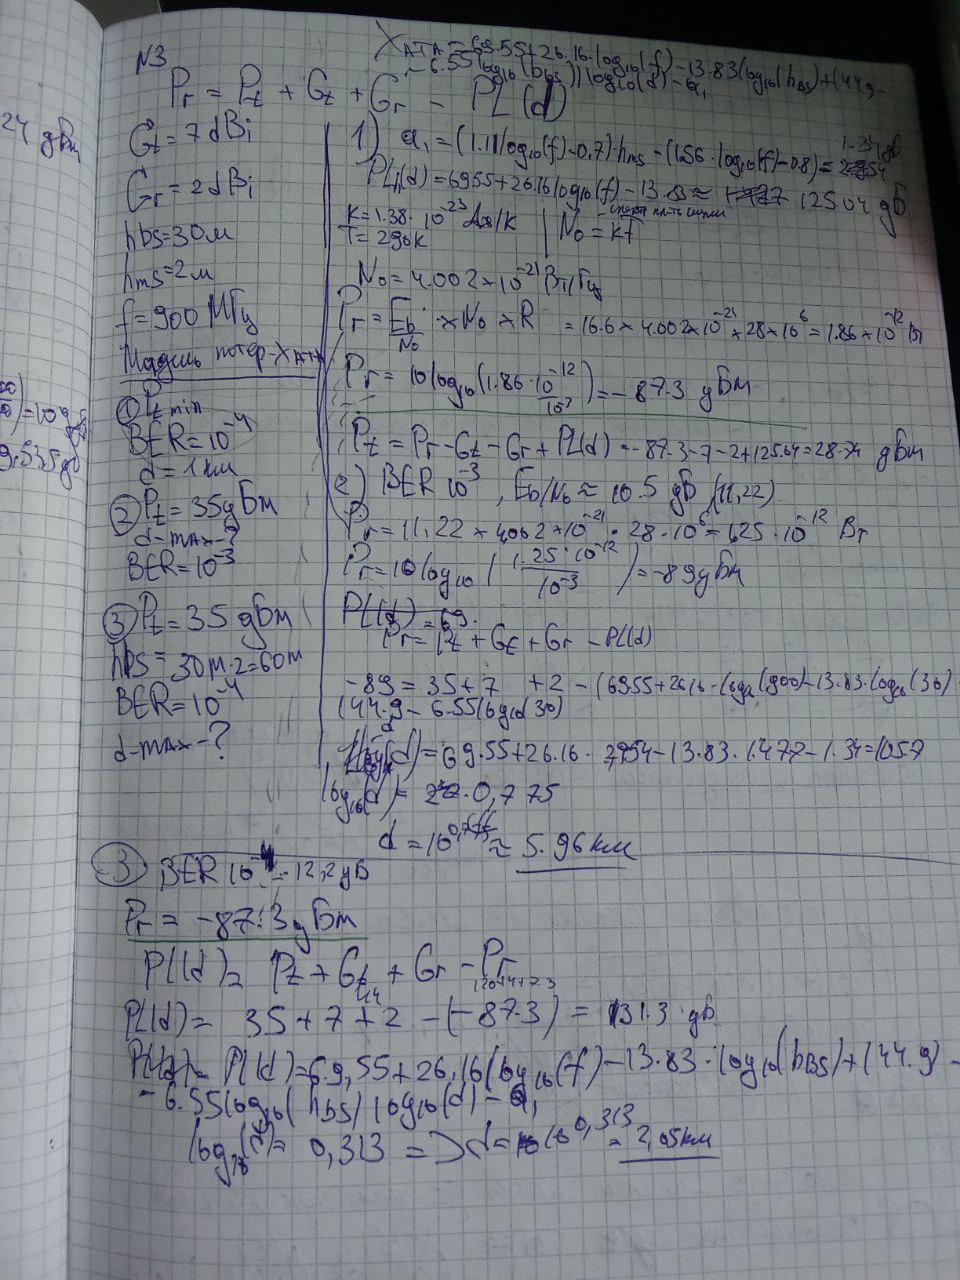 N3
XATA = 69.55+26.16 log10(f) - 13.83 log10(hBS) + (44,9 -
- 6.55 log10(hBS)) log10(d) - a1
Pr = Pt + Gt + Gr - PL(d)
24 дБм
Gt = 7 dBi
Gr = 2 dBi
hbs = 30м
hms = 2м
f = 900 МГц
Модель потер-ХАТА
① Pt min
BER = 10^-4
d = 1 км
② Pt = 35 дБм
d-max-?
BER = 10^-3
③ Pt = 35 дБм
hbs = 30м·2 = 60м
BER = 10^-4
d-max-?
) = 10 дБ
9.535 дБ
1) a1 = (1.11 log10(f) - 0,7)·hms - (1.56·log10(f) - 0.8) = 1.34 дБ
PL(d) = 69.55 + 26.16 log10(f) - 13.83 ≈ 125.04 дБ
K = 1.38·10^-23 Дж/К
T = 290К
N0 = kT
N0 = 4.002×10^-21 Вт/Гц
Pr = Eb/N0 × N0 × R = 16.6×4.002×10^-21×28×10^6 = 1.86×10^-12 Вт
Pr = 10 log10(1.86·10^-12/10^-3) = -87.3 дБм
Pt = Pr - Gt - Gr + PL(d) = -87.3-7-2+125.04 = 28.74 дБм
2) BER 10^-3, Eb/N0 ≈ 10.5 дБ (11,22)
Pr = 11,22×4.002×10^-21·28·10^6 = 1,25·10^-12 Вт
Pr = 10 log10(1.25·10^-12/10^-3) = -89 дБм
PL(d) = 69.
Pr = Pt + Gt + Gr - PL(d)
-89 = 35+7 +2 - (69.55+26.16·log10(900) - 13.83·log10(30)
(44.9 - 6.55 log10 30)
(d) = 69.55+26.16·2.954-13.83·1.477-1.34 = 105.7
log10(d) = 0,775
d = 10^0,775 ≈ 5.96 км
③ BER 10^-4 - 12,2 дБ
Pr = -87.3 дБм
PL(d) = Pt + Gt + Gr - Pr
PL(d) = 35 + 7 + 2 - (-87.3) = 131.3 дБ
PL(d) = 69,55 + 26,16(log10(f) - 13.83·log10(hBS) + (44.9) -
- 6.55 log10(hbs) log10(d) - a1
log10(d) = 0,313 => d = 10^0,313 = 2,05 км